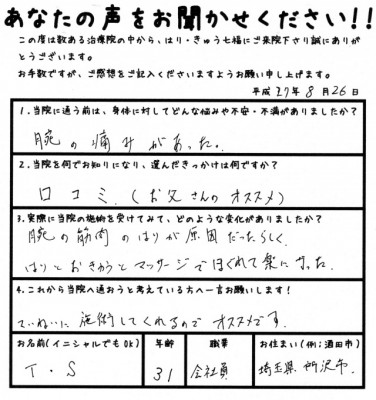 あなたの声をお聞かせください!!
この度は数ある治療院の中から、はり・きゅう七福にご来院下さり誠にありが
とうございます。
お手数ですが、ご感想をご記入くださいますようお願い申し上げます。
平成 27年 8月 26日
1.当院に通う前は、身体に対してどんな悩みや不安・不満がありましたか?
腕の痛みがあった。
2.当院を何でお知りになり、選んだきっかけは何ですか?
口コミ.(お父さんのオススメ)
3.実際に当院の施術を受けてみて、どのような変化がありましたか?
腕の筋肉のはりが原因だったらしく、
はりとおきゅうとマッサージでほぐれて楽になった。
4.これから当院へ通おうと考えている方へ一言お願いします!
ていねいに施術してくれるのでオススメです。
お名前(イニシャルでもOK) 年齢 職業 お住まい(例:酒田市)
T・S 31 会社員 埼玉県所沢市.